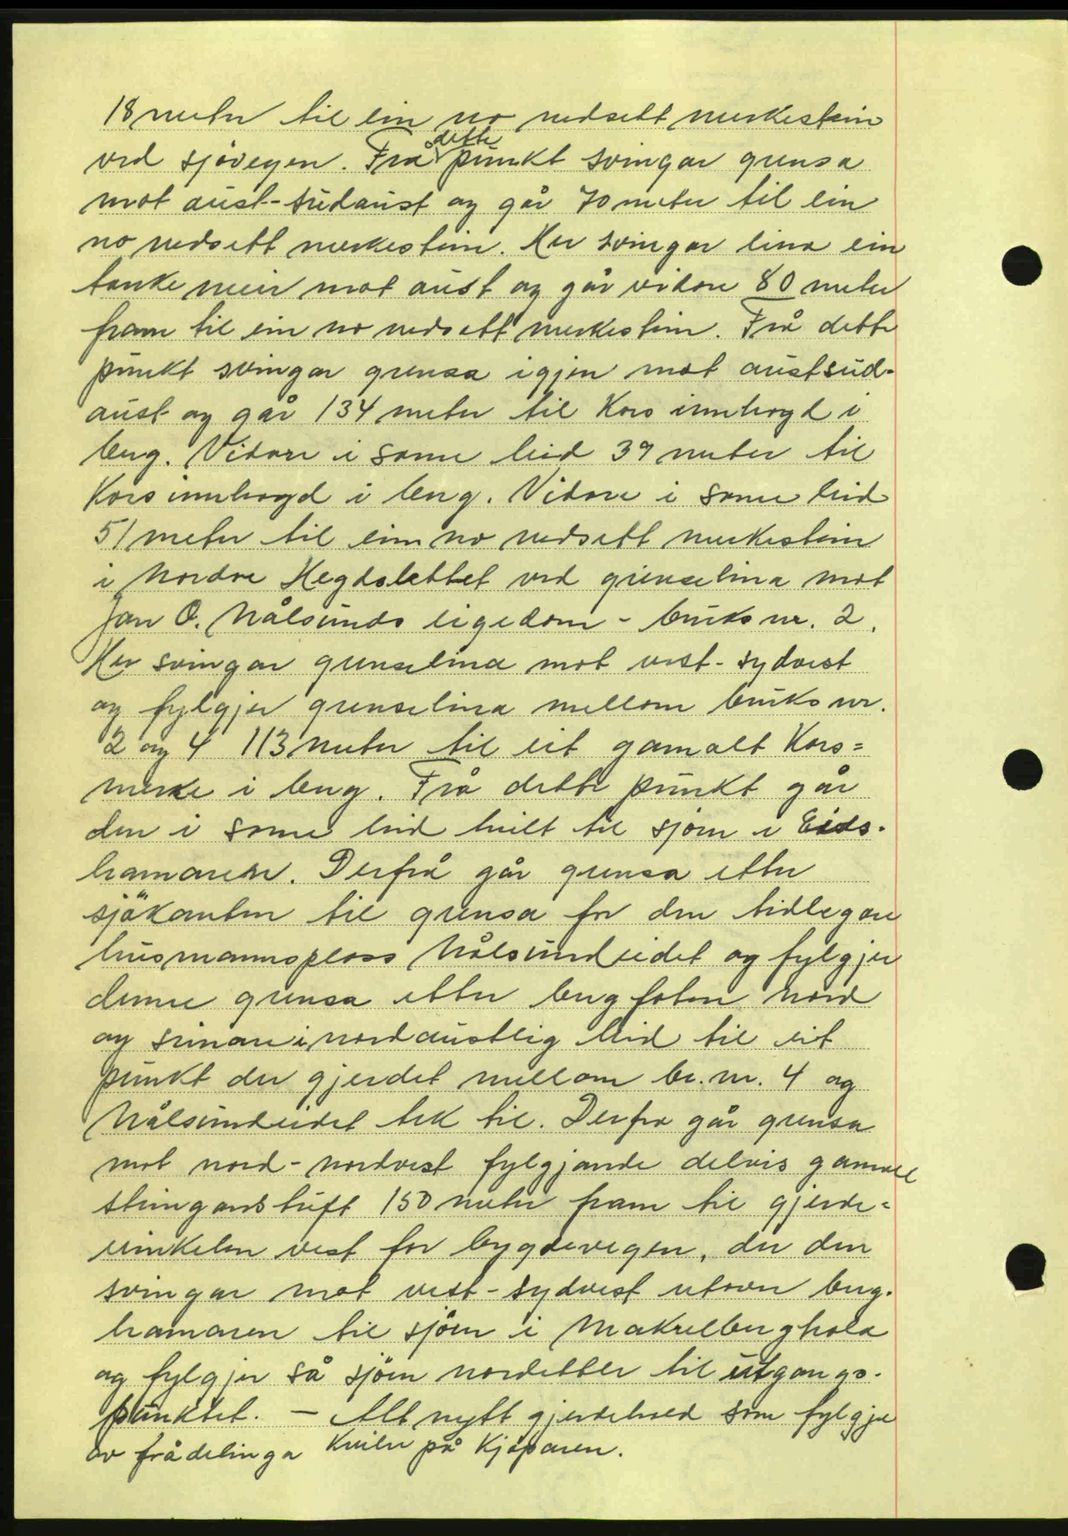 18 meter til ein no nedsett merkestein
ved sjövegen. Frå dette punkt svingar grensa
mot aust-sudaust og går 70 meter til ein
no nedsett merkestein. Her svingar lina ein
tanke meir mot aust og går vidare 80 meter
fram til ein no nedsett merkestein. Frå dette
punkt svingar grensa igjen mot austsud-
aust og går 134 meter til Kors innhogd i
berg. Vidare i same leid 39 meter til
Kors innhogd i berg. Vidare i same leid
51 meter til ein no nedsett merkestein
i Nordre Hegdslettet ved grenselina mot
Jan O. Nålsunds eigedom - bruks nr. 2.
Her svingar grenselina mot vest-sydvest
og fylgjer grenselina mellom bruks nr.
2 og 4 113 meter til eit gamalt Kors=
merke i berg. Frå dette punkt går
den i same leid heilt til sjöen i Eids-
hamaren. Derfrå går grensa etter
sjökanten til grensa for den tidlegare
husmannsplass Nålsundeidet og fylgjer
denne grensa etter bergfoten nord
og seinare i nordaustleg leid til eit
punkt der gjerdet mellom br. nr. 4 og
Nålsundeidet tek til. Derfra går grensa
mot nord-nordvest fylgjande delvis gammel
steingardstuft 150 meter fram til gjerde=
vinkelen vest for bygdevegen, der den
svingar mot vest-sydvest utover berg-
hamaren til sjöen i Makrelberghola
og fylgjer så sjöen nordetter til utgangs-
punktet. - Alt nytt gjerdehald som fylgjer
av frådelinga kviler på Kjöparen.